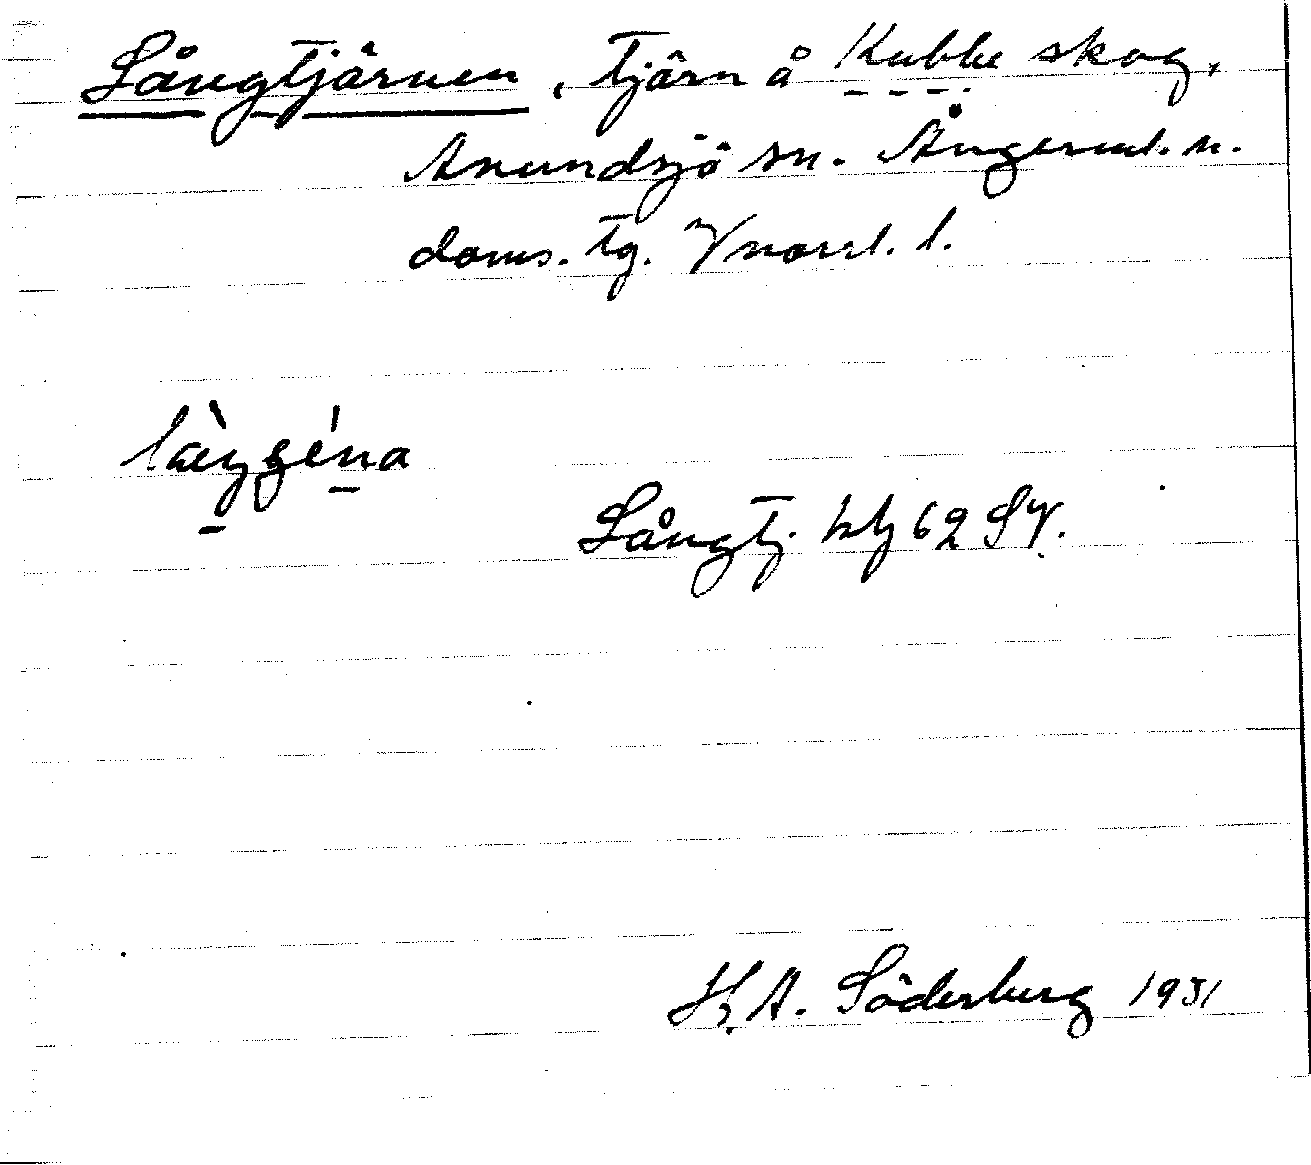 Långtjärnen, tjärn å Kubbe skog,
Anundsjö sn. Ångerml. n.
doms. tg. Vnorrl. l.
Långtj. ktbl 62 SV.
H. A. Söderberg 1931